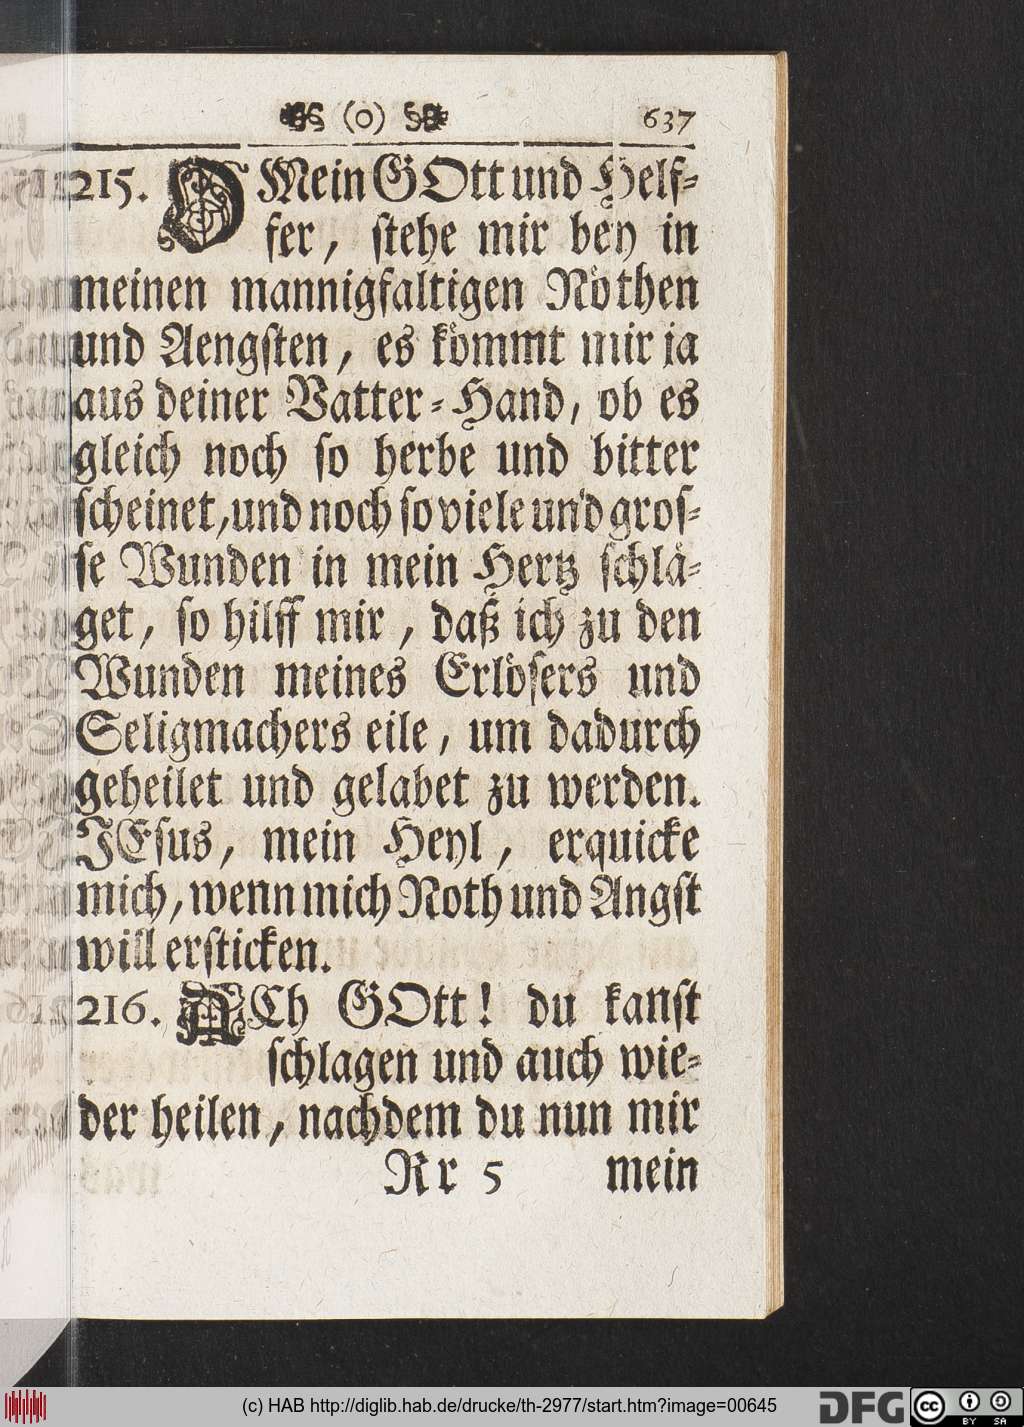 (o) 637
215. O Mein GOtt und Helf-
fer, stehe mir bey in
meinen mannigfaltigen Nöthen
und Aengsten, es kömmt mir ja
aus deiner Vatter-Hand, ob es
gleich noch so herbe und bitter
scheinet, und noch so viele und gros-
se Wunden in mein Hertz schlä-
get, so hilff mir, daß ich zu den
Wunden meines Erlösers und
Seligmachers eile, um dadurch
geheilet und gelabet zu werden.
JEsus, mein Heyl, erquicke
mich, wenn mich Noth und Angst
will ersticken.
216. ACh GOtt! du kanst
schlagen und auch wie-
der heilen, nachdem du nun mir
Rr 5 mein
(c) HAB http://diglib.hab.de/drucke/th-2977/start.htm?image=00645
DFG cc BY SA